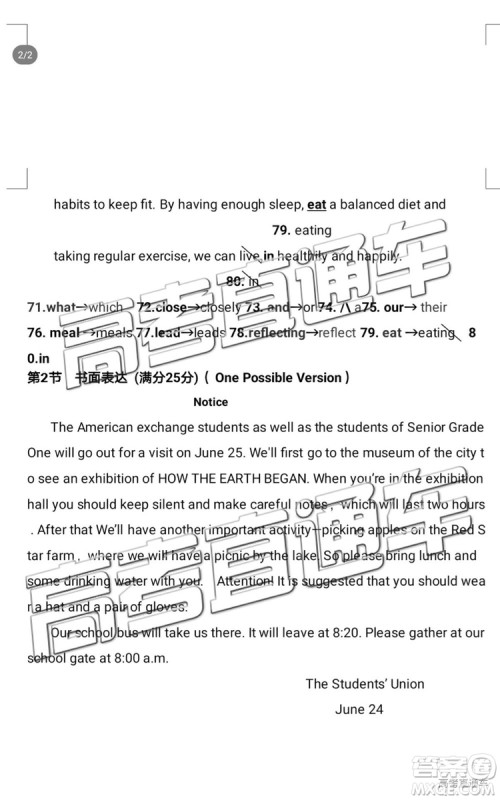 2/2
habits to keep fit. By having enough sleep, eat a balanced diet and
79. eating
taking regular exercise, we can live in healthily and happily.
80. in
71.what→which 72.close→closely 73. and→or 74. /\ a 75. our→ their
76. meal→meals 77.lead→leads 78.reflecting→reflect 79. eat →eating 8
0.in
第2节 书面表达 (满分25分)( One Possible Version )
Notice
The American exchange students as well as the students of Senior Grade
One will go out for a visit on June 25. We'll first go to the museum of the city t
o see an exhibition of HOW THE EARTH BEGAN. When you're in the exhibition
hall you should keep silent and make careful notes , which will last two hours
. After that We'll have another important activity—picking apples on the Red S
tar farm , where we will have a picnic by the lake. So please bring lunch and
some drinking water with you. Attention! It is suggested that you should wea
r a hat and a pair of gloves.
Our school bus will take us there. It will leave at 8:20. Please gather at our
school gate at 8:00 a.m.
The Students' Union
June 24
高考直通车
高考直通车
高考直通车
答案圈
MXQE.COM